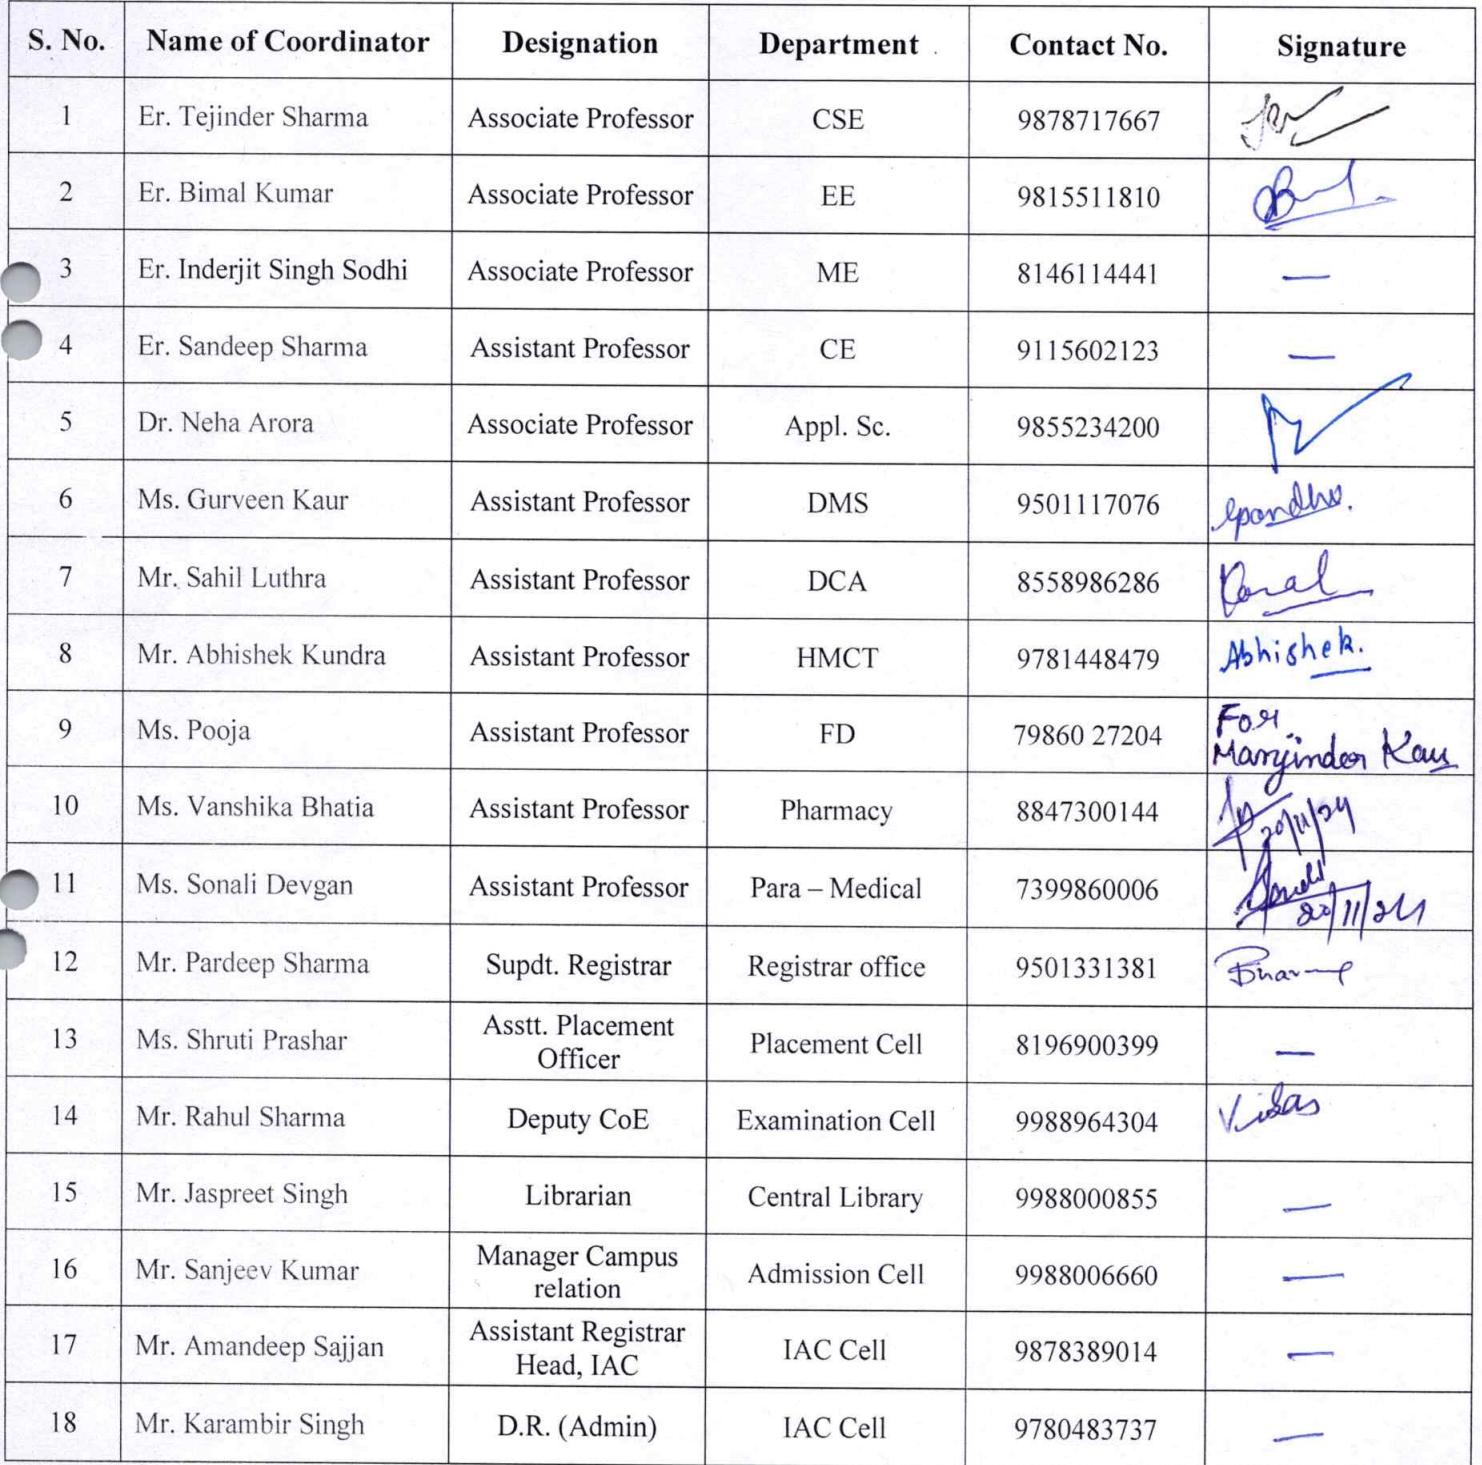 S. No. Name of Coordinator Designation Department Contact No. Signature
1 Er. Tejinder Sharma Associate Professor CSE 9878717667
2 Er. Bimal Kumar Associate Professor EE 9815511810
3 Er. Inderjit Singh Sodhi Associate Professor ME 8146114441 —
4 Er. Sandeep Sharma Assistant Professor CE 9115602123 —
5 Dr. Neha Arora Associate Professor Appl. Sc. 9855234200
6 Ms. Gurveen Kaur Assistant Professor DMS 9501117076
7 Mr. Sahil Luthra Assistant Professor DCA 8558986286
8 Mr. Abhishek Kundra Assistant Professor HMCT 9781448479 Abhishek.
9 Ms. Pooja Assistant Professor FD 79860 27204 For
Manjinder Kaur
10 Ms. Vanshika Bhatia Assistant Professor Pharmacy 8847300144
20/11/24
11 Ms. Sonali Devgan Assistant Professor Para – Medical 7399860006
20/11/24
12 Mr. Pardeep Sharma Supdt. Registrar Registrar office 9501331381
13 Ms. Shruti Prashar Asstt. Placement
Officer Placement Cell 8196900399 —
14 Mr. Rahul Sharma Deputy CoE Examination Cell 9988964304
15 Mr. Jaspreet Singh Librarian Central Library 9988000855 —
16 Mr. Sanjeev Kumar Manager Campus
relation Admission Cell 9988006660 —
17 Mr. Amandeep Sajjan Assistant Registrar
Head, IAC IAC Cell 9878389014 —
18 Mr. Karambir Singh D.R. (Admin) IAC Cell 9780483737 —